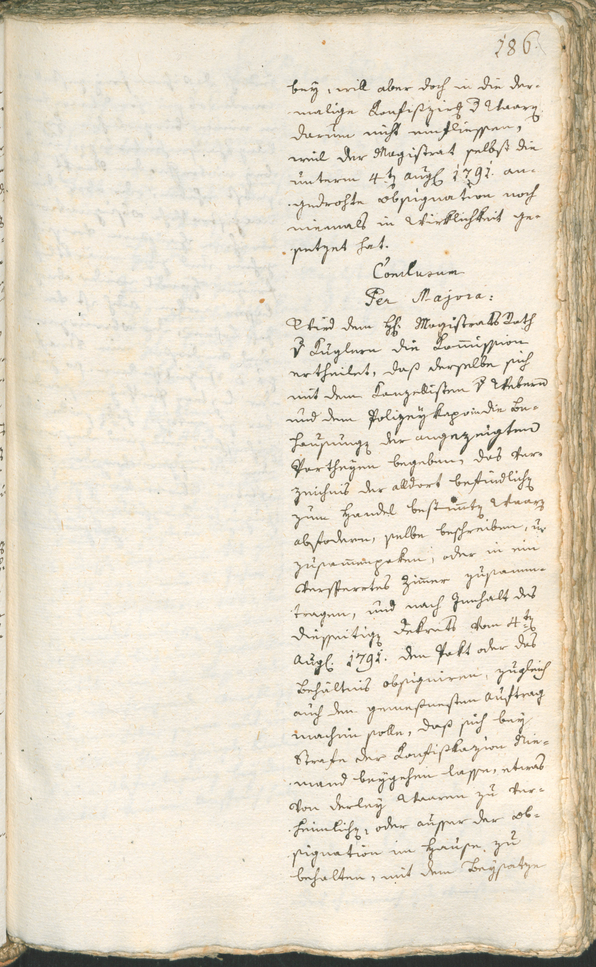 186.
bey, will aber doch in die der-
malige Konfiszirg d Waarn
darum nicht einfliessen,
weil der Magistrat selbst die
unterm 4t. Augs. 1791. an-
gedrohte Obsignation noch
niemals in Wirklichkeit ge-
setzet hat.
Conclusum
Per Majora:
Wird dem H. Magistrats Rath
v Kuglern die Kommission
ertheilet, daß derselbe sich
mit dem Kanzelisten v Webern
und dem Polizey die Be-
hausung der angezeigten
Partheyen begeben, das Ver-
zeichnis der alldort befindlich
zum Handel bestimmt Waar
abfodern, selbe beschreiben, u
zusammenpaken, oder in ein
versperrtes Zimer zusamm-
tragen, und nach Innhalt des
diesseitig Dekrets vom 4t.
Augs. 1791. den Pakt oder das
Behältnis obsigniren, zugleich
auch den gemessensten Auftrag
machen solle, daß sich bey
Strafe der Konfiskazion Nie-
mand beygehen lasse, etwas
von derley Waaren zu ver-
heimlich, oder ausser der Ob-
signation im Hause zu
behalten, mit dem Beysatze